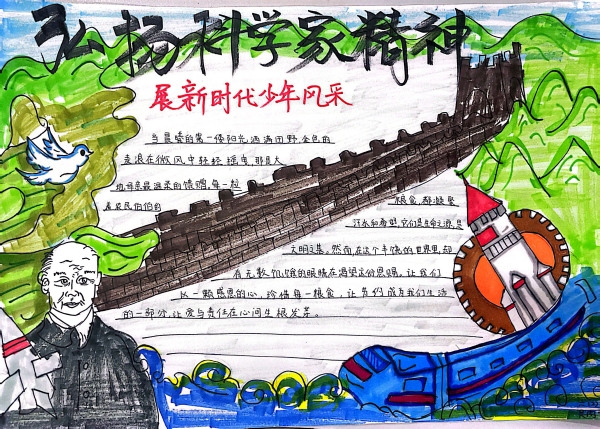 弘扬科学家精神
展新时代少年风采
当晨曦的第一缕阳光洒满田野,金色的
麦浪在微风中轻轻摇曳,那是大
地母亲最温柔的馈赠,每一粒
粮食,都凝聚
着农民伯伯的
汗水和希望,它们是生命之源,是
文明之基。然而,在这个丰饶的世界里,却
有无数饥饿的眼睛在渴望这份恩赐,让我们
以一颗感恩的心,珍惜每一粮食,让节约成为我们生活
的一部分,让爱与责任在心间生根发芽。